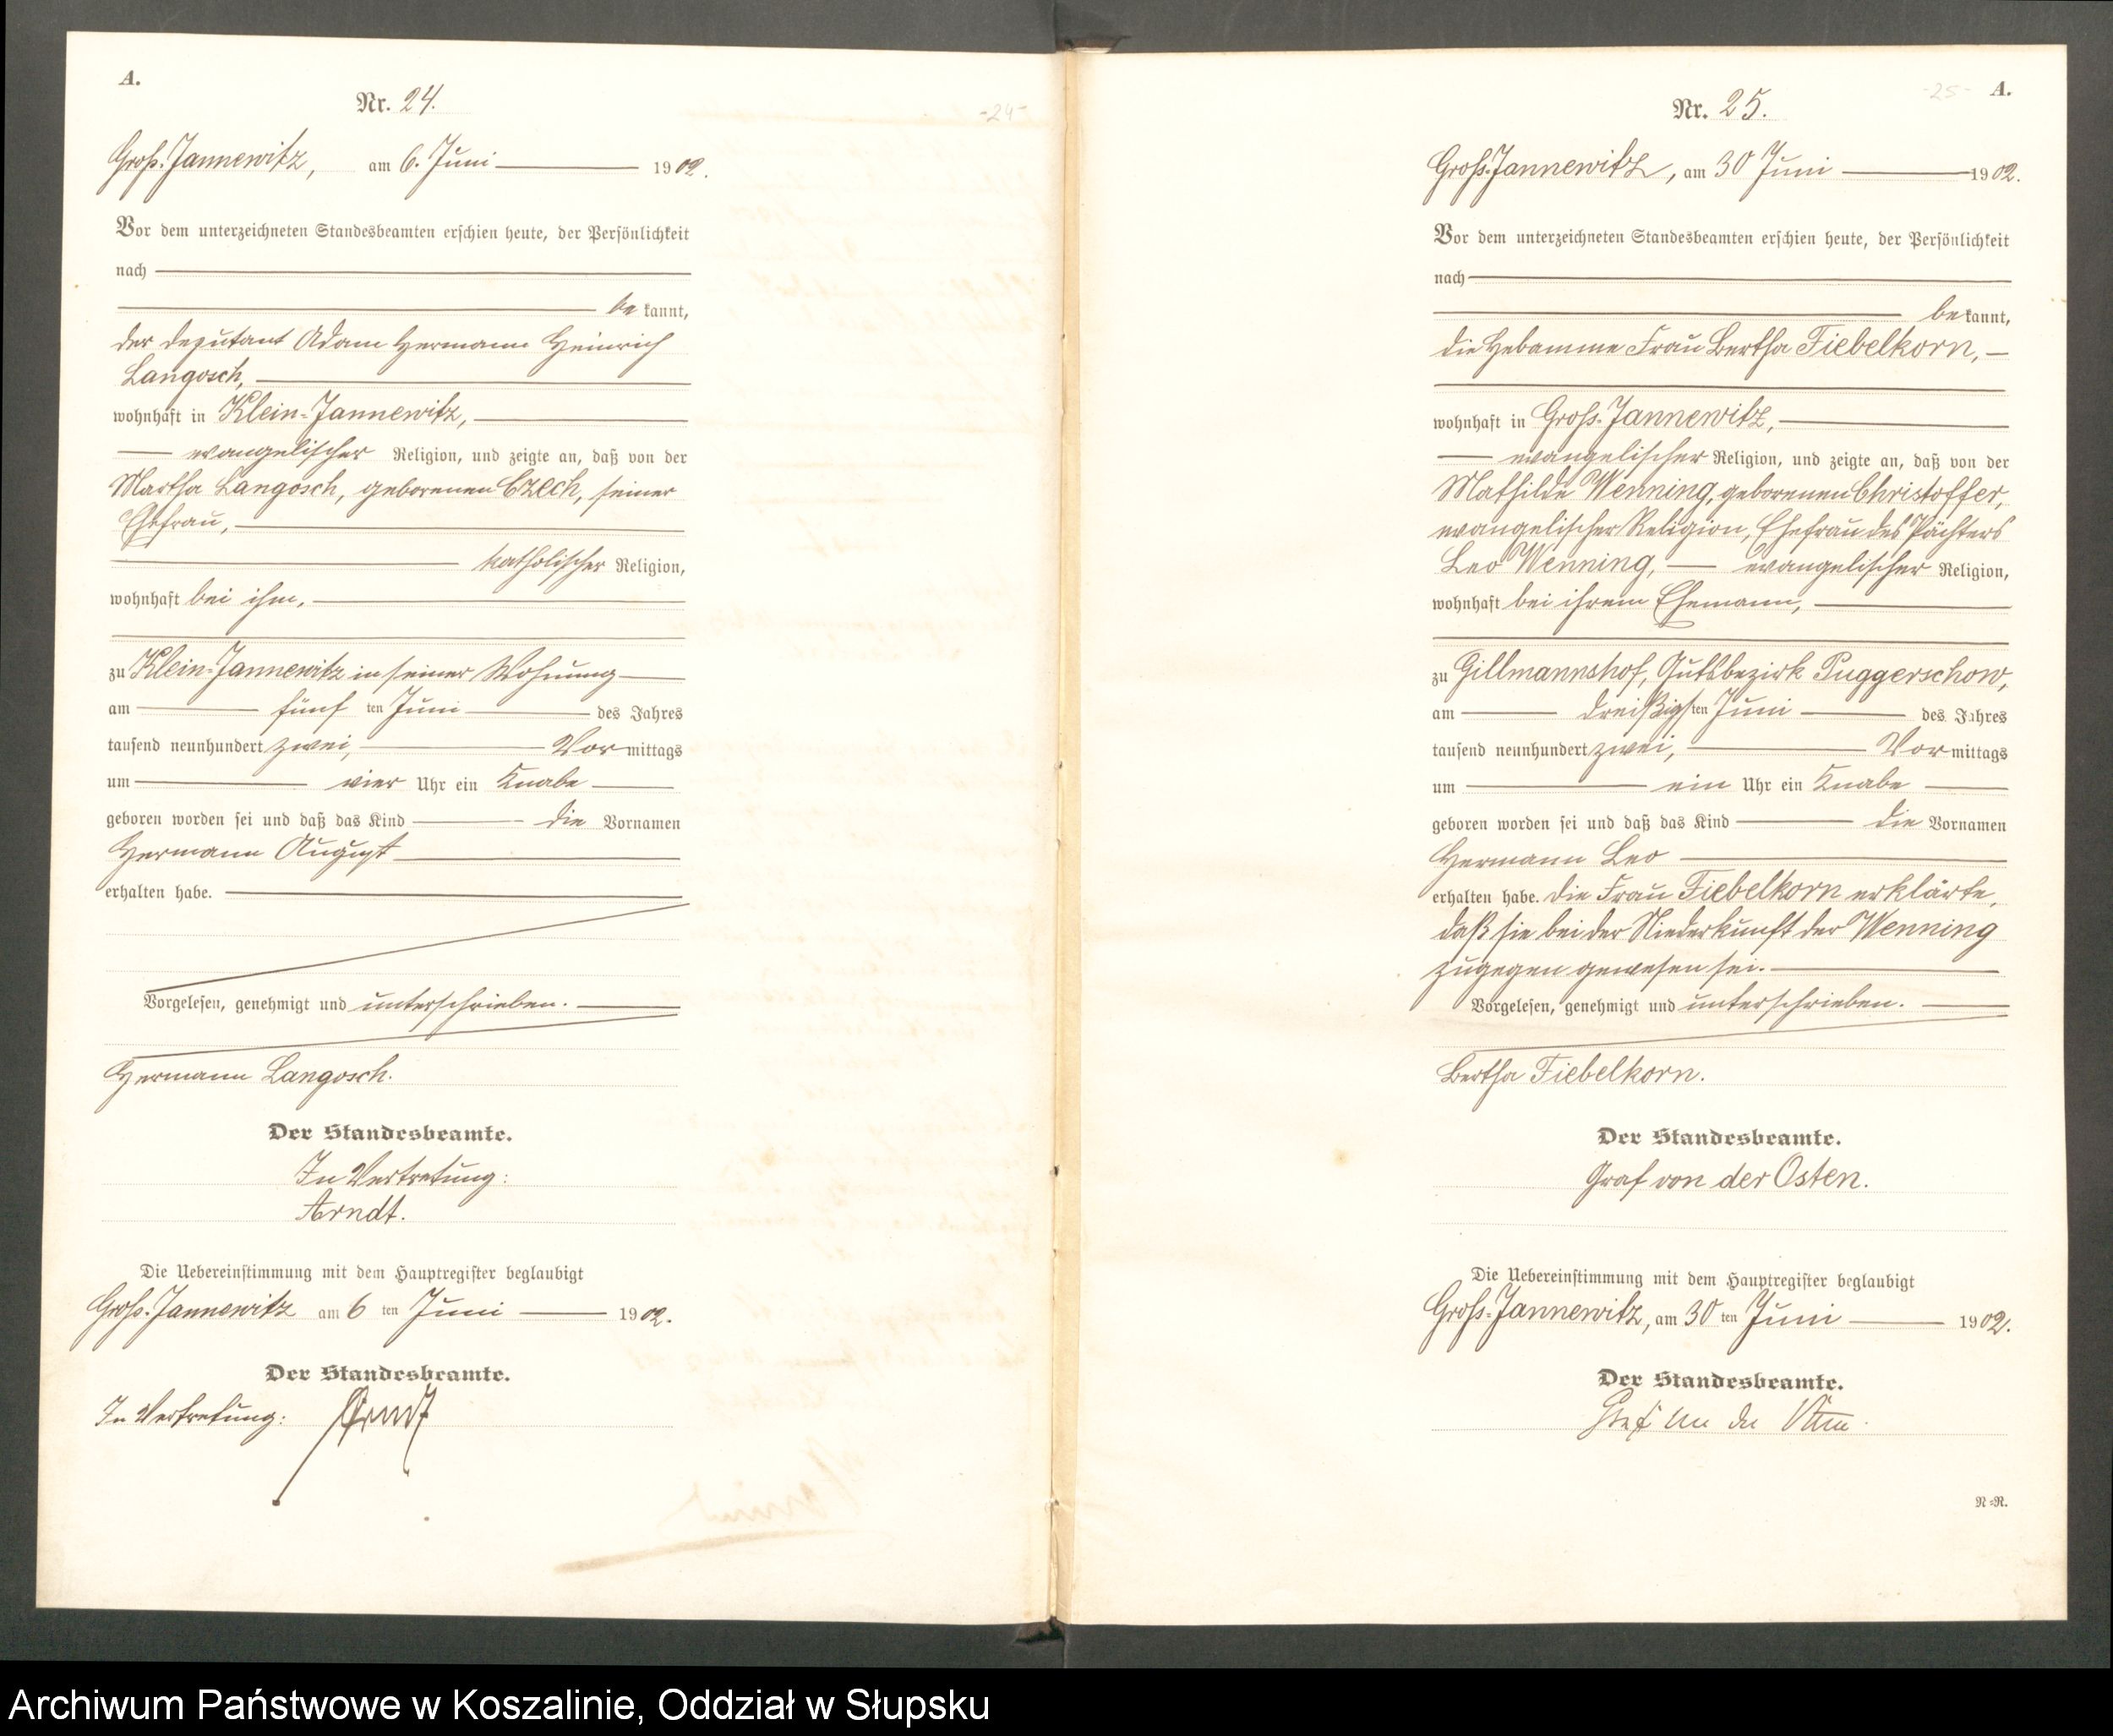 A.
Nr. 24.
-24-
Groß-Jannewitz, am 6. Juni 1902.
Vor dem unterzeichneten Standesbeamten erschien heute, der Persönlichkeit
nach
bekannt,
der Deputant Adam Hermann Heinrich
Langosch,
wohnhaft in Klein-Jannewitz,
evangelischer Religion, und zeigte an, daß von der
Martha Langosch, geborenen Czech, seiner
Ehefrau,
katholischer Religion,
wohnhaft bei ihm,
zu Klein-Jannewitz in seiner Wohnung
am fünften Juni des Jahres
tausend neunhundert zwei, Vormittags
um vier Uhr ein Knabe
geboren worden sei und daß das Kind die Vornamen
Hermann August
erhalten habe.
Vorgelesen, genehmigt und unterschrieben.
Hermann Langosch.
Der Standesbeamte.
In Vertretung:
Arndt.
Die Uebereinstimmung mit dem Hauptregister beglaubigt
Groß-Jannewitz am 6ten Juni 1902.
Der Standesbeamte.
In Vertretung: Arndt
-25- A.
Nr. 25.
Groß-Jannewitz, am 30 Juni 1902.
Vor dem unterzeichneten Standesbeamten erschien heute, der Persönlichkeit
nach
bekannt,
die Hebamme Frau Bertha Fiebelkorn,
wohnhaft in Groß-Jannewitz,
evangelischer Religion, und zeigte an, daß von der
Mathilde Wenning, geborenen Christoffer,
evangelischer Religion, Ehefrau des Pächters
Leo Wenning, evangelischer Religion,
wohnhaft bei ihrem Ehemann,
zu Gillmannshof, Gutsbezirk Puggerschow,
am dreißigsten Juni des Jahres
tausend neunhundert zwei, Vormittags
um ein Uhr ein Knabe
geboren worden sei und daß das Kind die Vornamen
Hermann Leo
erhalten habe. Die Frau Fiebelkorn erklärte,
daß sie bei der Niederkunft der Wenning
zugegen gewesen sei.
Vorgelesen, genehmigt und unterschrieben.
Bertha Fiebelkorn.
Der Standesbeamte.
Graf von der Osten.
Die Uebereinstimmung mit dem Hauptregister beglaubigt
Groß-Jannewitz, am 30ten Juni 1902.
Der Standesbeamte.
Graf von der Osten.
N=R.
Archiwum Państwowe w Koszalinie, Oddział w Słupsku